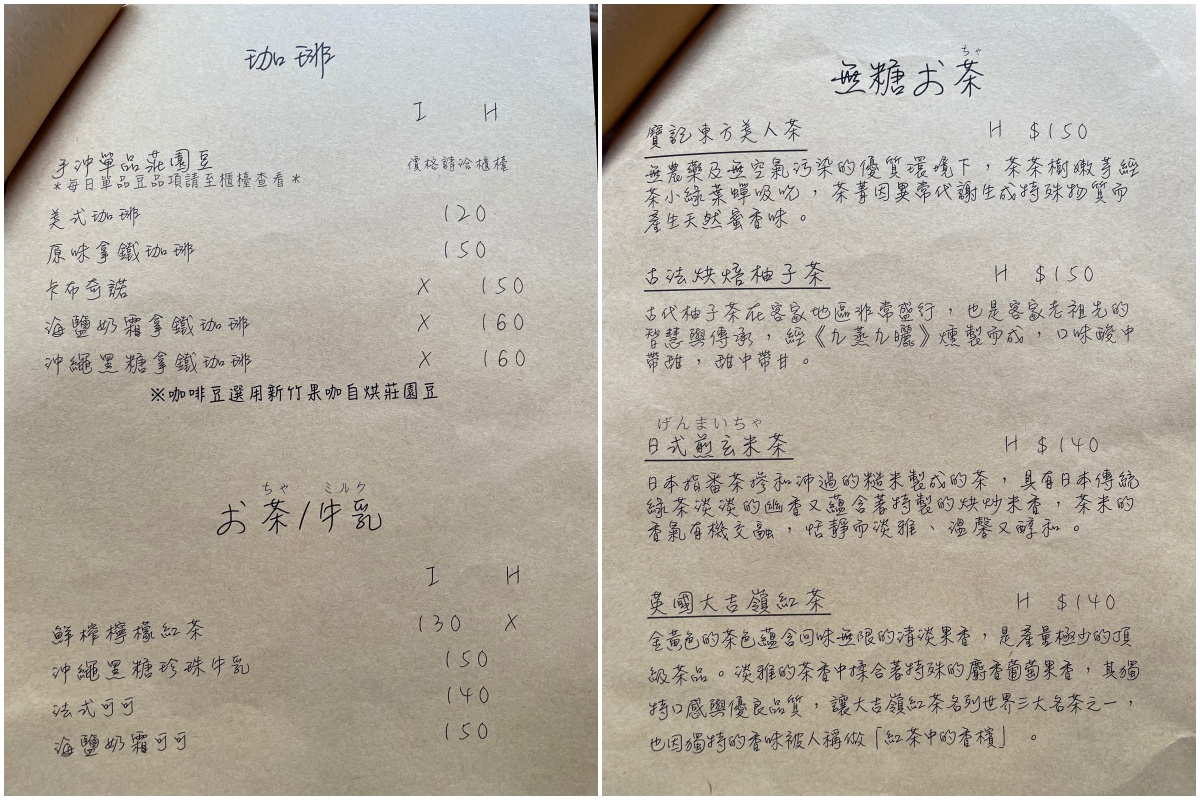 珈琲
I H
手沖單品莊園豆 價格請洽櫃檯
*每日單品豆品項請至櫃檯查看*
美式珈琲 120
原味拿鐵珈琲 150
卡布奇諾 X 150
海鹽奶霜拿鐵珈琲 X 160
沖繩黑糖拿鐵珈琲 X 160
※咖啡豆選用新竹果咖自烘莊園豆
ちゃ ミルク
お茶/牛乳
I H
鮮榨檸檬紅茶 130 X
沖繩黑糖珍珠牛乳 150
法式可可 140
海鹽奶霜可可 150
ちゃ
無糖お茶
寶記東方美人茶 H $150
無農藥及無空氣污染的優質環境下，茶茶樹嫩芽經
茶小綠葉蟬吸吮，茶菁因異常代謝生成特殊物質而
產生天然蜜香味。
古法烘焙柚子茶 H $150
古代柚子茶在客家地區非常盛行，也是客家老祖先的
智慧與傳承，經《九蒸九曬》燻製而成，口味酸中
帶甜，甜中帶甘。
げんまいちゃ
日式煎玄米茶 H $140
日本指番茶摻和沖過的糙米製成的茶，具有日本傳統
綠茶淡淡的幽香又蘊含著特製的烘炒米香，茶米的
香氣有機交融，恬靜而淡雅、溫馨又醇和。
英國大吉嶺紅茶 H $140
金黃色的茶色蘊含回味無限的清淡果香，是產量極少的頂
級茶品。淡雅的茶香中揉合著特殊的麝香葡萄果香，其獨
特口感與優良品質，讓大吉嶺紅茶名列世界三大名茶之一，
也因獨特的香味被人稱做「紅茶中的香檳」。